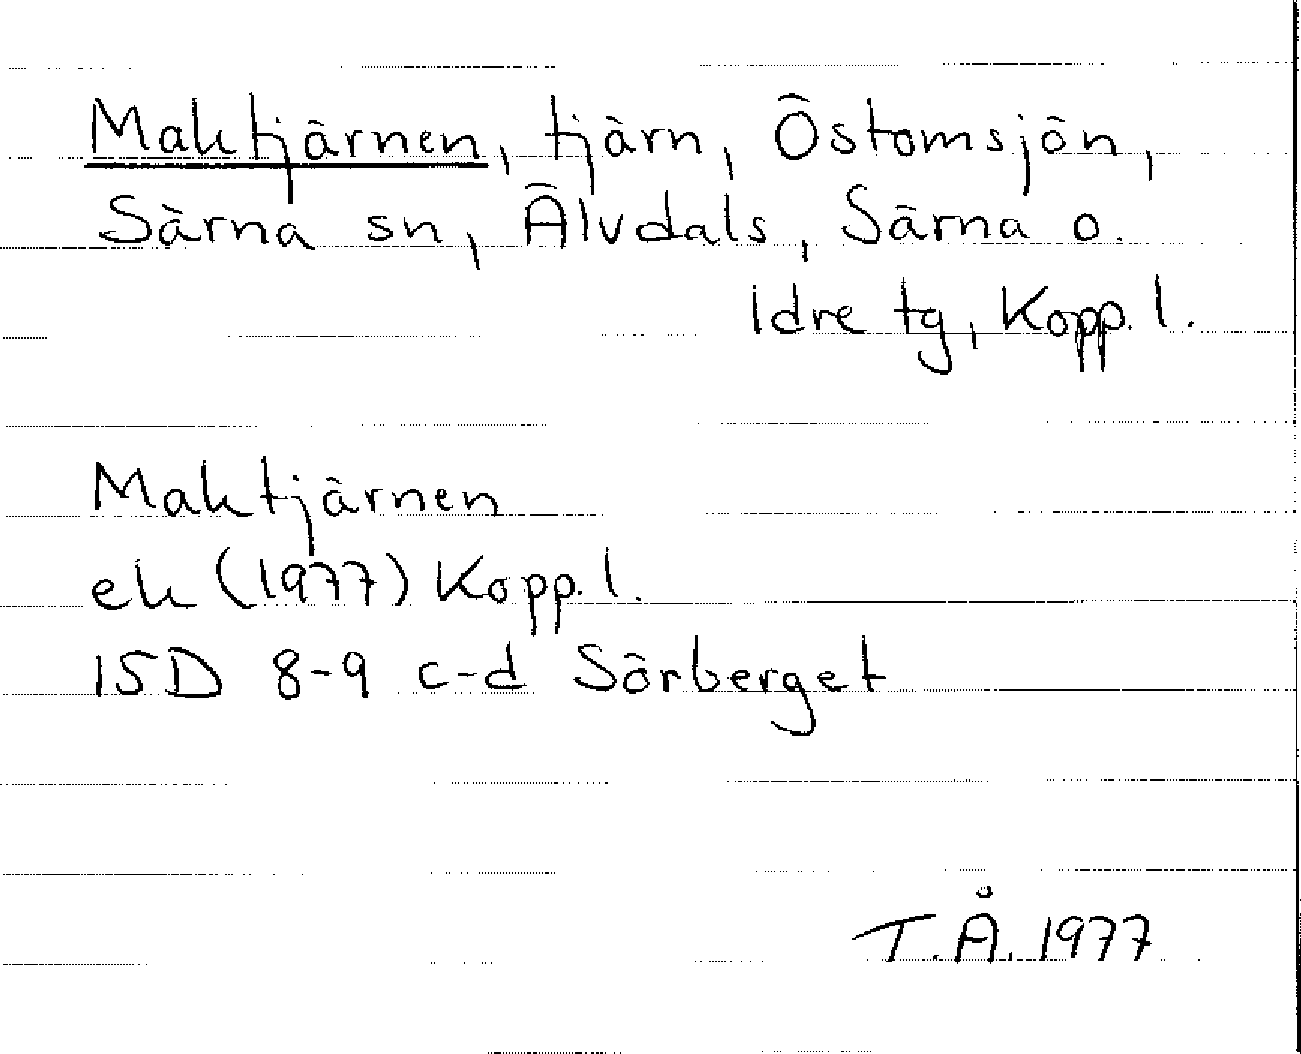 Maktjärnen, tjärn, Östomsjön,
Särna sn, Älvdals, Särna o.
Idre tg, Kopp. l.
Maktjärnen
ek (1977) Kopp. l.
15D 8-9 c-d Sörberget
T.Å. 1977